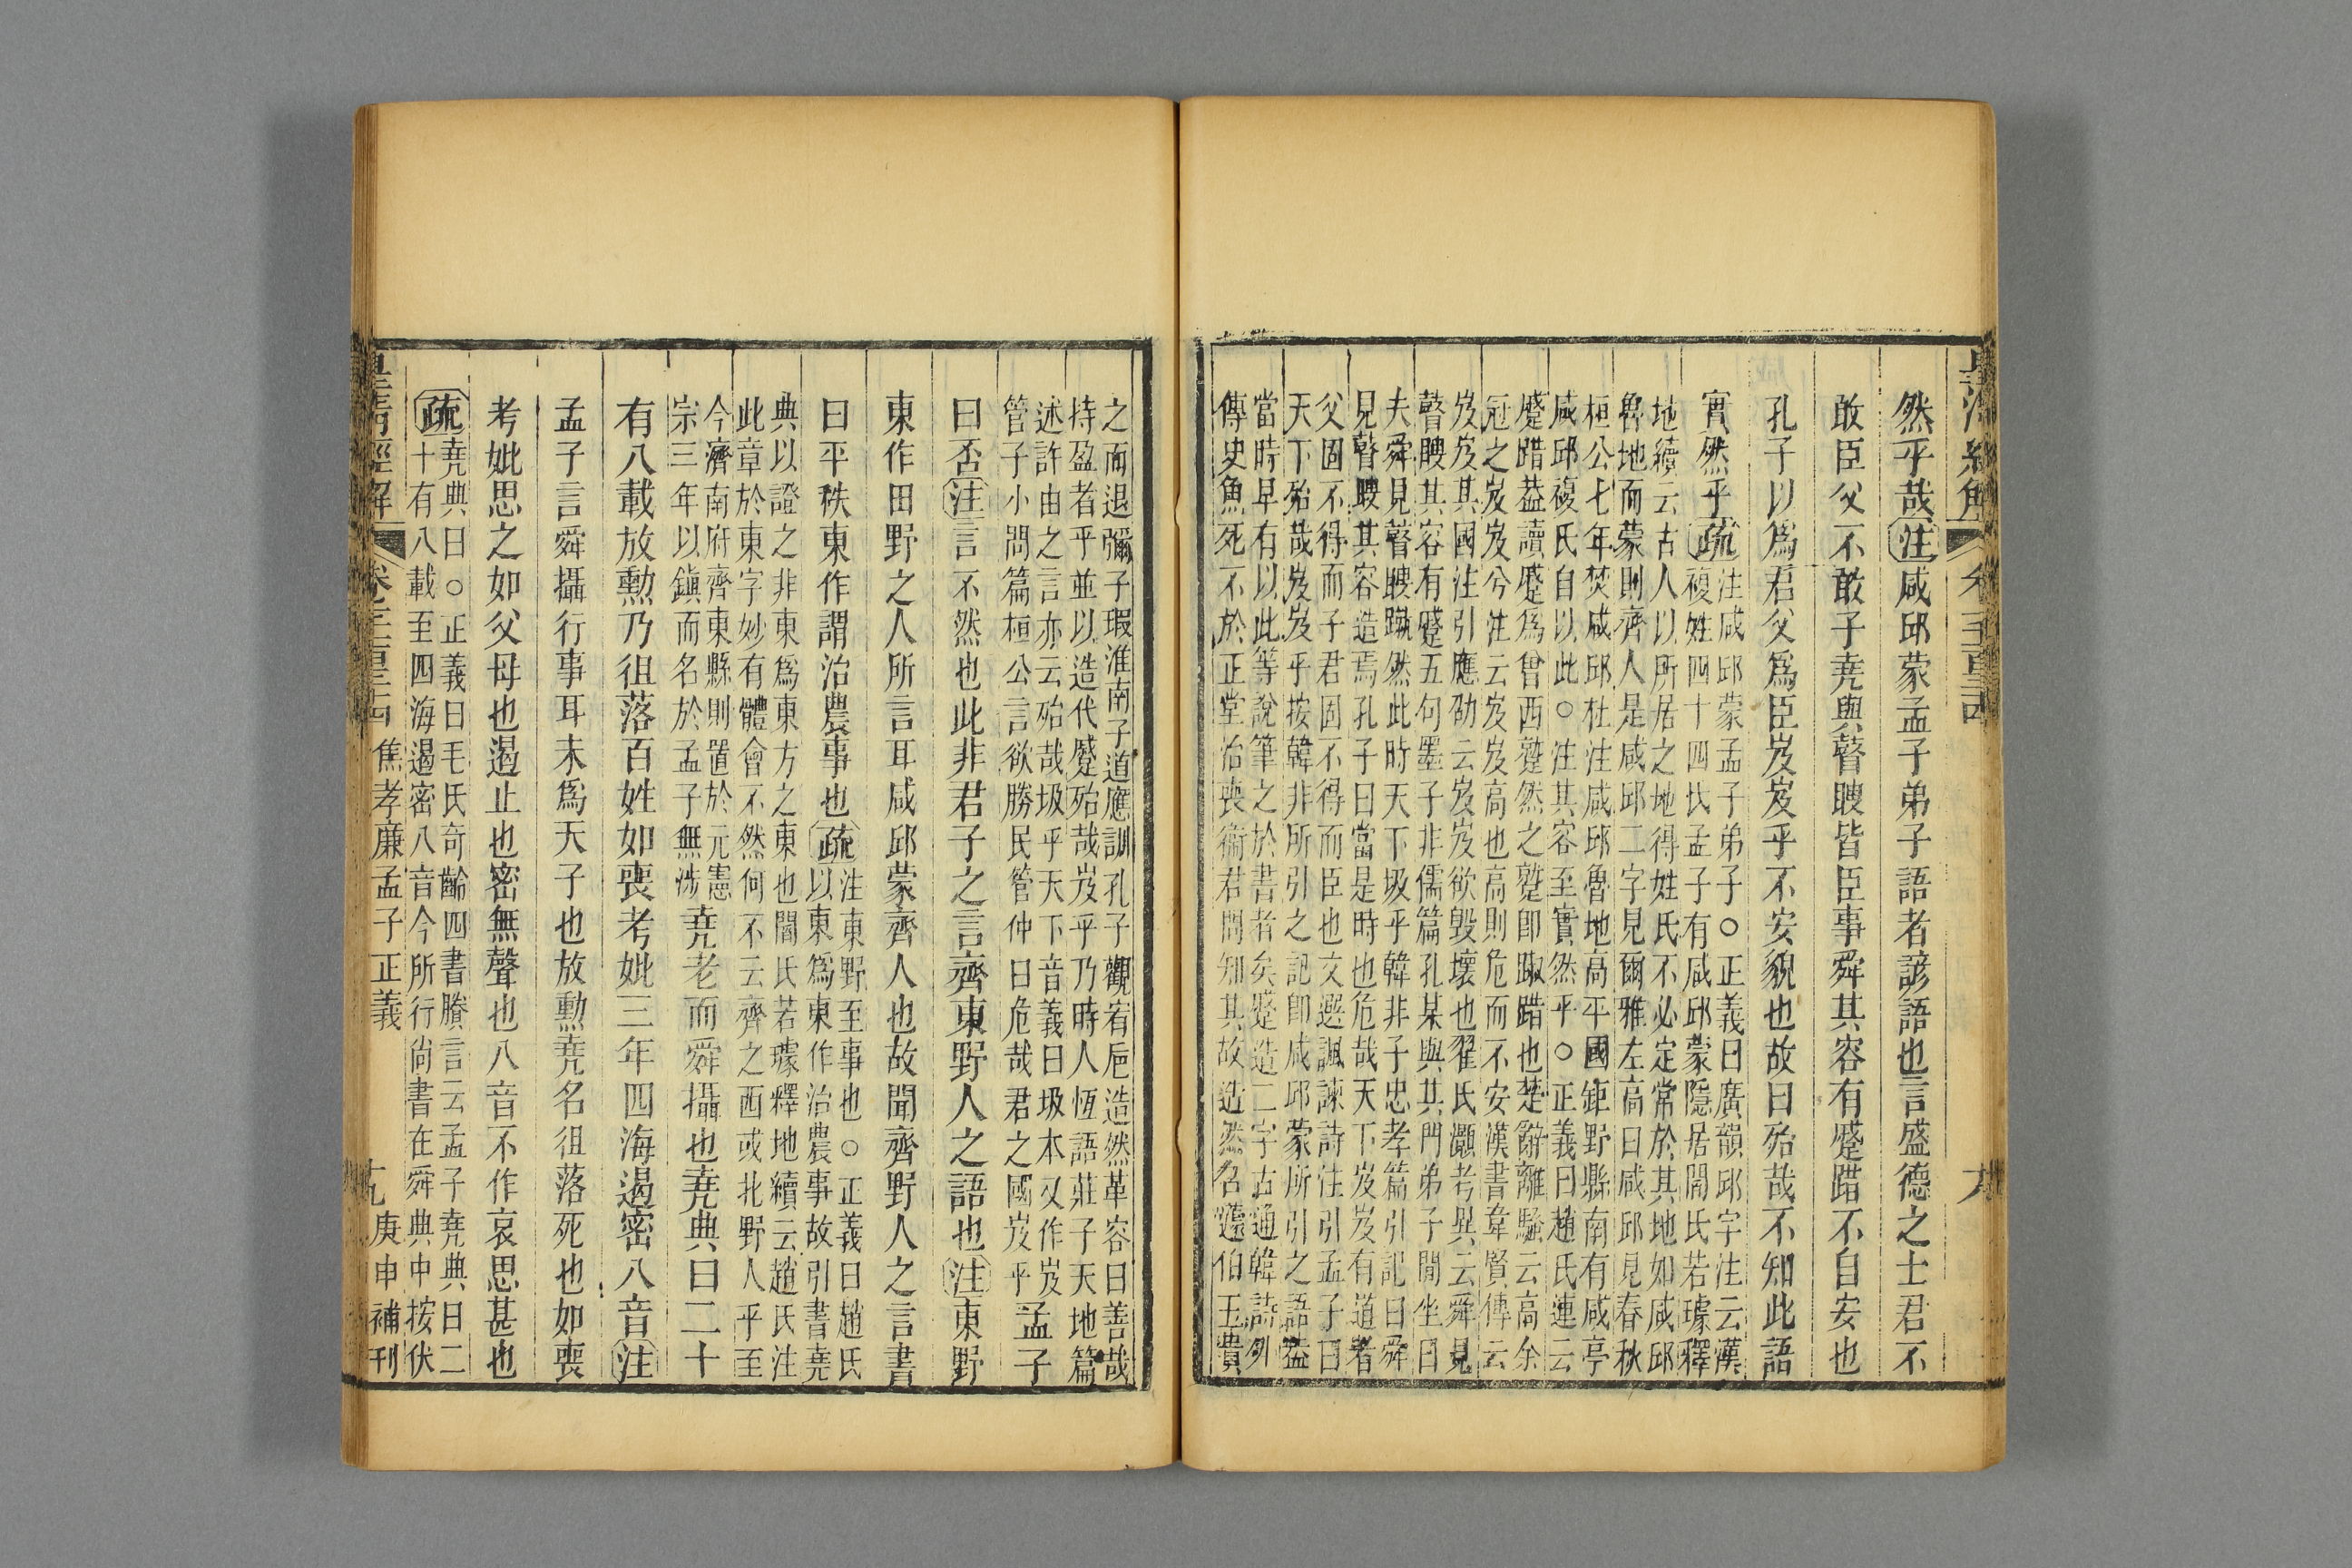 然乎哉注咸邱蒙孟子弟子語者諺語也言盛德之士君不
敢臣父不敢子堯與瞽瞍皆臣事舜其容有蹙踖不自安也
孔子以爲君父爲臣岌岌乎不安貌也故曰殆哉不知此語
實然乎疏
注咸邱蒙孟子弟子○正義曰廣韻邱字注云漢
複姓四十四氏孟子有咸邱蒙隱居閻氏若璩釋
地續云古人以所居之地得姓氏不必定常於其地如咸邱
魯地而蒙則齊人是咸邱二字見爾雅左高曰咸邱見春秋
桓公七年焚咸邱杜注咸邱魯地高平國鉅野縣南有咸亭
咸邱複氏自以此○注其容至實然乎○正義曰趙氏連云
蹙踖葢讀蹙爲曾西蹵然之蹵卽踧踖也楚辭離騷云高余
冠之岌岌兮注云岌岌高也高則危而不安漢書韋賢傳云
岌岌其國注引應劭云岌岌欲毀壞也翟氏灝考異云舜見
瞽瞍其容有蹙五句墨子非儒篇孔某與其門弟子閒坐曰
夫舜見瞽瞍蹴然此時天下圾乎韓非子忠孝篇引記曰舜
見瞽瞍其容造焉孔子曰當是時也危哉天下岌岌有道者
父固不得而子君固不得而臣也文選諷諫詩注引孟子曰
天下殆哉岌岌乎按韓非所引之記卽咸邱蒙所引之語葢
當時早有以此等說筆之於書者矣蹙造二字古通韓詩外
傳史魚死不於正堂治喪衞君問知其故造然召蘧伯玉貴
之而退彌子瑕淮南子道應訓孔子觀宥巵造然革容曰善哉
持盈者乎並以造代蹙殆哉岌乎乃時人恆語莊子天地篇
述許由之言亦云殆哉圾乎天下音義曰圾本又作岌
管子小問篇桓公言欲勝民管仲曰危哉君之國岌乎
孟子
曰否注言不然也此非君子之言齊東野人之語也注東野
東作田野之人所言耳咸邱蒙齊人也故聞齊野人之言書
曰平秩東作謂治農事也疏
注東野至事也○正義曰趙氏
以東爲東作治農事故引書堯
典以證之非東爲東方之東也閻氏若璩釋地續云趙氏注
此章於東字妙有體會不然何不云齊之西或北野人乎至
今濟南府齊東縣則置於元憲
宗三年以鎭而名於孟子無涉
堯老而舜攝也堯典曰二十
有八載放勳乃徂落百姓如喪考妣三年四海遏密八音注
孟子言舜攝行事耳未爲天子也放勳堯名徂落死也如喪
考妣思之如父母也遏止也密無聲也八音不作哀思甚也
疏
堯典曰○正義曰毛氏奇齡四書賸言云孟子堯典曰二
十有八載至四海遏密八音今所行尙書在舜典中按伏
皇清經解
焦孝廉孟子正義
庚申補刊